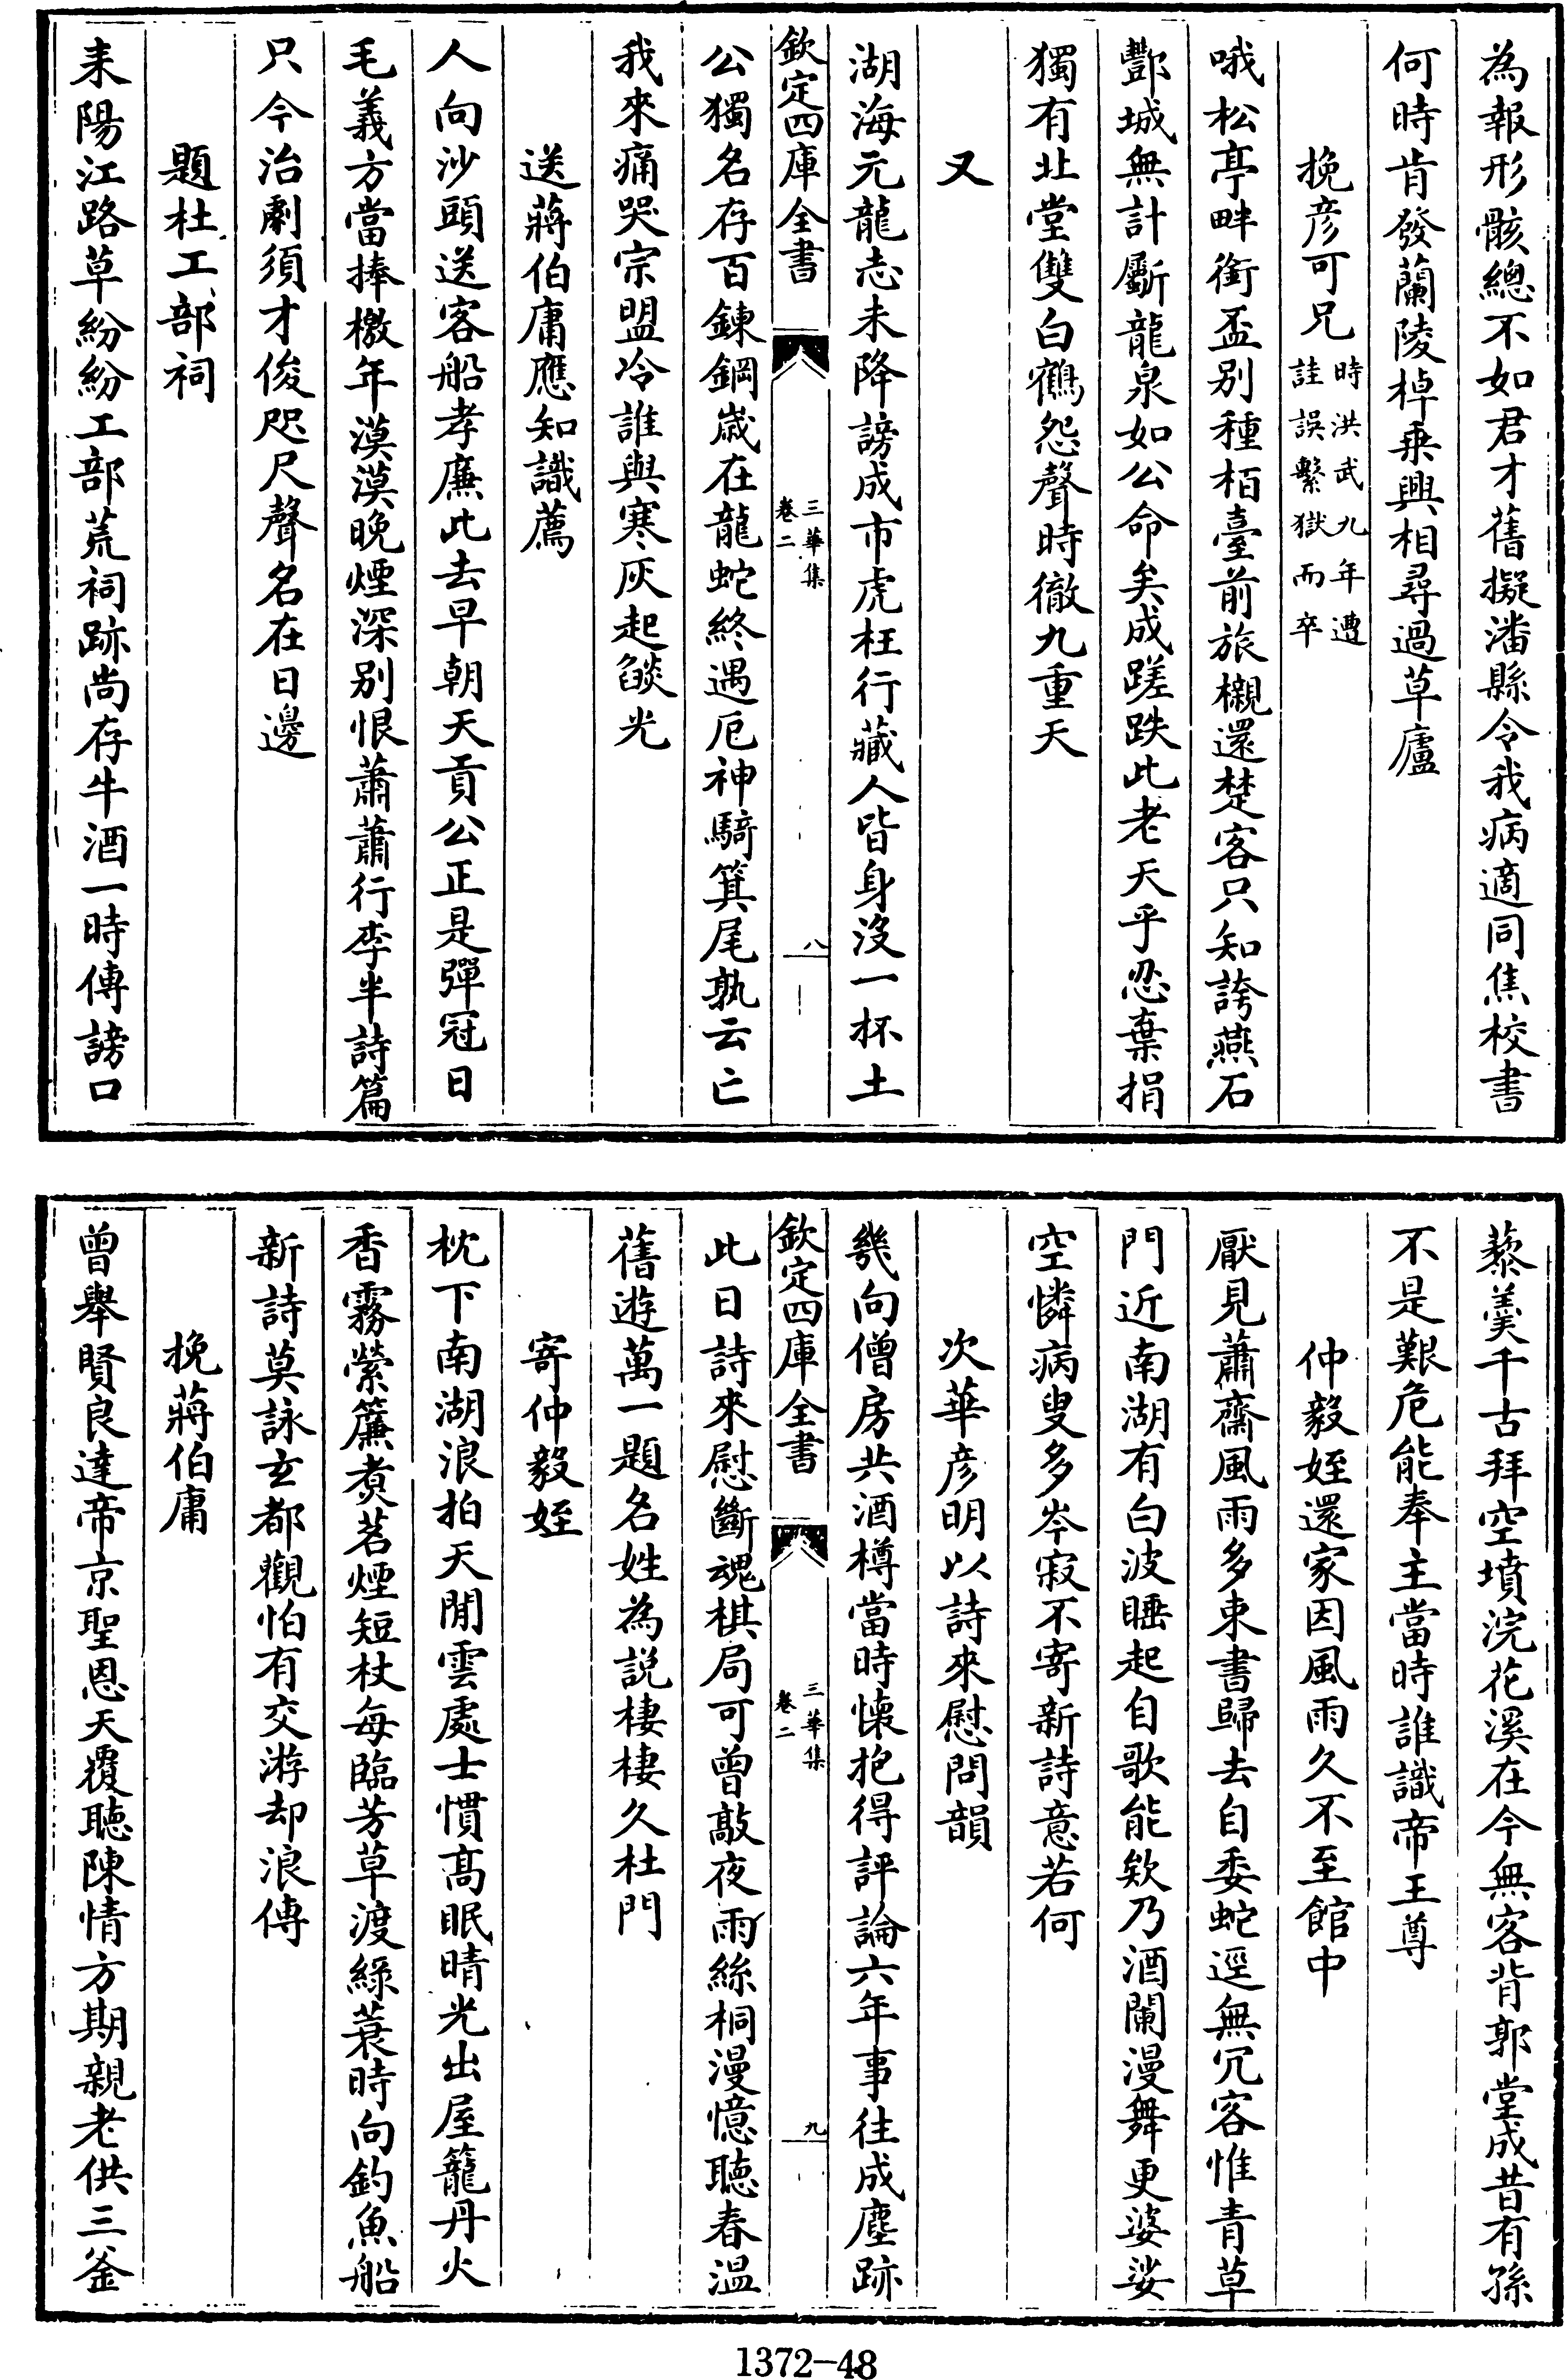 為報形骸總不如君才舊擬潘縣令我病適同焦校書
何時肯發蘭陵棹乗興相尋過草廬
挽彦可兄時洪武九年遭詿誤繫獄而卒
哦松亭畔銜盃别種栢臺前旅櫬還楚客只知誇燕石
酆城無計斸龍泉如公命矣成蹉跌此老天乎忍棄捐
獨有北堂雙白鶴怨聲時徹九重天
又
湖海元龍志未降謗成市虎枉行藏人皆身沒一杯土
欽定四庫全書
三華集
卷二
八
公獨名存百鍊鋼歲在龍蛇終遇厄神騎箕尾孰云亡
我來痛哭宗盟冷誰與寒灰起燄光
送蔣伯庸應知識薦
人向沙頭送客船孝廉此去早朝天貢公正是彈冠日
毛義方當捧檄年漠漠晚煙深别恨蕭蕭行李半詩篇
只今治劇須才俊咫尺聲名在日邊
題杜工部祠
耒陽江路草紛紛工部荒祠跡尚存牛酒一時傳謗口
藜羮千古拜空墳浣花溪在今無客背郭堂成昔有孫
不是艱危能奉主當時誰識帝王尊
仲毅姪還家因風雨久不至館中
厭見蕭齋風雨多束書歸去自委蛇逕無冗客惟青草
門近南湖有白波睡起自歌能欸乃酒闌漫舞更婆娑
空憐病叟多岑寂不寄新詩意若何
次華彦明以詩來慰問韻
幾向僧房共酒樽當時懐抱得評論六年事往成塵跡
欽定四庫全書
三華集
卷二
九
此日詩來慰斷魂棋局可曾敲夜雨絲桐漫憶聽春温
舊遊萬一題名姓為說棲棲久杜門
寄仲毅姪
枕下南湖浪拍天閒雲處士慣高眠晴光出屋籠丹火
香霧縈簾煑茗煙短杖每臨芳草渡綠蓑時向釣魚船
新詩莫詠玄都觀怕有交游却浪傳
挽蔣伯庸
曾舉賢良達帝京聖恩天覆聽陳情方期親老供三釜
1372-48